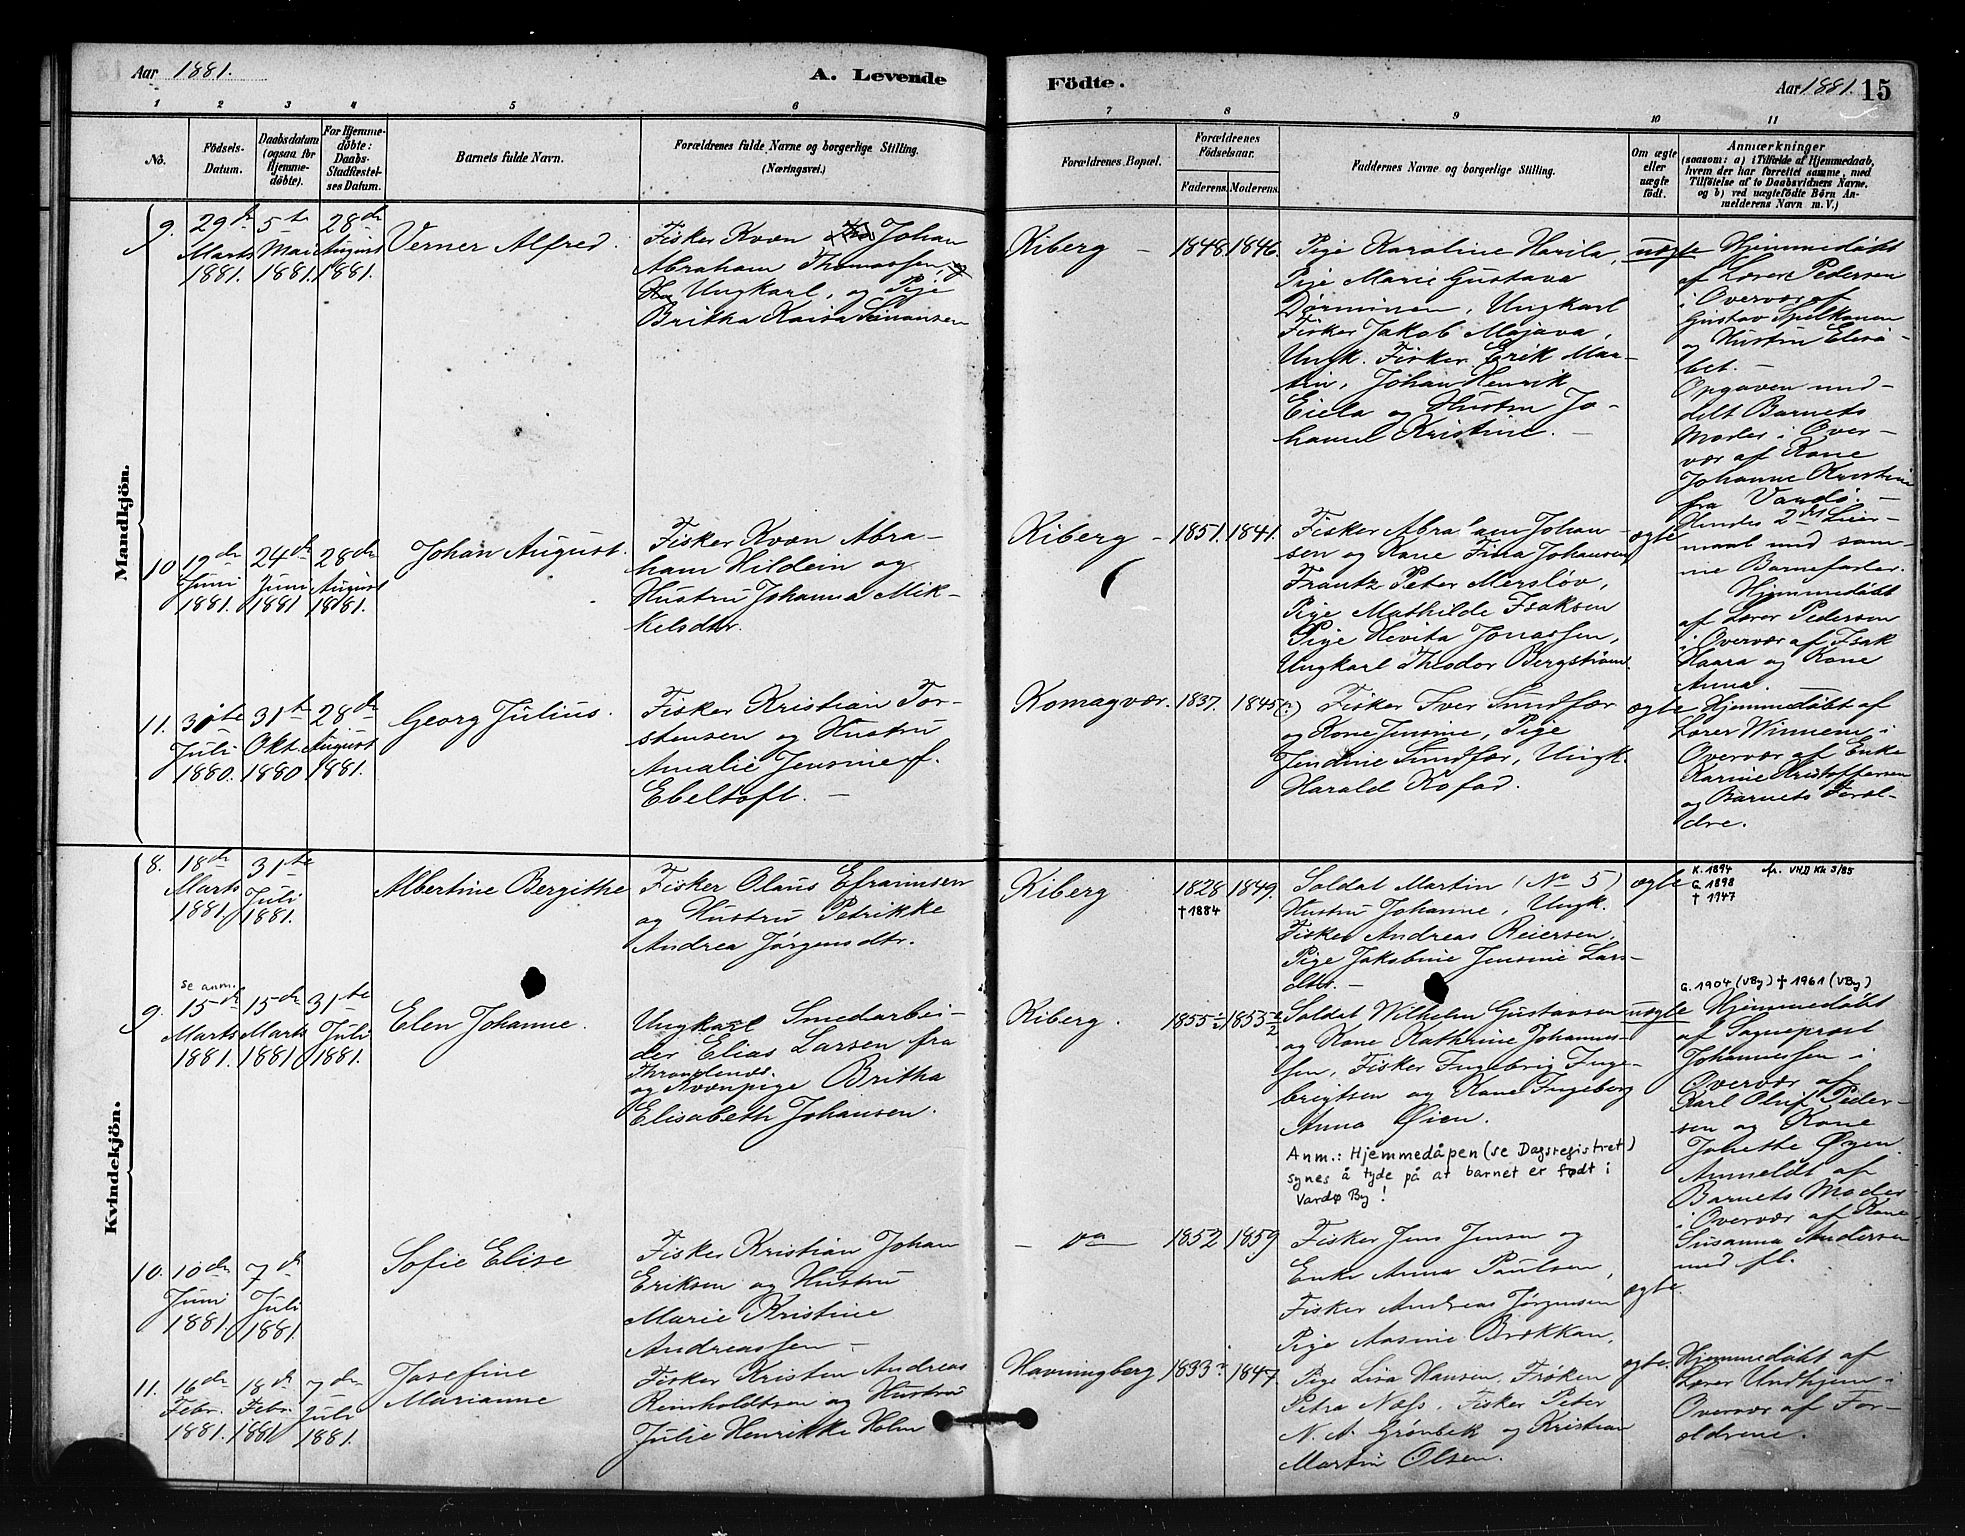 Aar 1881.
A. Levende
Födte.
Aar 1881. 15
1 2 3 4 5 6 7 8 9 10 11
No.
Födsels-
Datum.
Daabsdatum
(ogsaa for
Hjemme-
döbte).
For Hjemme-
döbte:
Daabs-
Stadfæstel-
ses Datum.
Barnets fulde Navn.
Forældrenes fulde Navne og borgerlige Stilling.
(Næringsvei.)
Forældrenes Bopæl.
Forældrenes
Födselsaar.
Faderens. Moderens.
Faddernes Navne og borgerlige Stilling.
Om ægte
eller
uægte
födt.
Anmærkninger
(saasom: a) i Tilfælde af Hjemmedaab,
hvem der har forrettet samme, med
Tilföielse af to Daabsvidners Navne,
og b) ved uægtefödte Börn An-
melderens Navn m. V.)
Mandkjön.
9.
29de
Marts
1881.
5te
Mai
1881.
28de
August
1881.
Verner Alfred.
Fisker Kvæn Johan
Abraham Thomassen,
Ungkarl, og Pige
Britha Kaisa Simonsen
Kiberg –
1848. 1846.
Pige Karoline Harila,
Pige Marie Gustava
Dörminen, Ungkarl
Fisker Jakob Majava,
Ungk. Fisker Erik Mar-
tin, Johan Henrik
Eiela og Hustru Jo-
hanne Kristine. –
uægte
Hjemmedöbt
af Lærer Pedersen
i Overvær af
Gustav Spelkanen
og Hustru Elisa-
bet. –
Opgaven med-
delt Barnets
Moder i Over-
vær af Kone
Johanne Kristine
fra Vardö. –
Hendes 2det Leier-
maal med sam-
me Barnefader.
10
19de
Juni
1881.
24de
Juni
1881
28de
August
1881.
Johan August.
Fisker Kvæn Abra-
ham Hildein og
Hustru Johanna Mik-
kelsdtr.
Kiberg –
1851. 1841.
Fisker Abraham Johan-
sen og Kone Fina Johansen,
Frantz Peter Merslöv,
Pige Mathilde Isaksen
Pige Hevita Jonassen,
Ungkarl Theodor Bergström.
ægte
Hjemmedöbt
af Lærer Pedersen
i Overvær af Isak
Haara og Kone
Anna. –
11.
30te
Juli
1880.
31te
Okt.
1880
28de
August
1881.
Georg Julius.
Fisker Kristian Tor-
stensen og Hustru
Amalie Jensine f.
Ebeltoft. –
Komagvær.
1837. 1845(?)
Fisker Iver Sundfær
og Kone Jensine, Pige
Jendine Sundfær, Ungk.
Harald Kofod.
ægte
Hjemmedöbt af
Lærer Winnem i
Overvær af Enke
Karine Kristoffersen
og Barnets Foræl-
dre.
Kvindekjön.
8.
18de
Marts
1881.
31te
Juli
1881.
Albertine Bergithe
Fisker Olaus Efraimsen
og Hustru Petrikke
Andrea Jörgensdtr.
Kiberg
1828 1849.
† 1884
Soldat Martin (No 5)
Hustru Johanne, Ungk.
Fisker Andreas Reiersen,
Pige Jakobine Jensine Lars-
dtr. –
ægte
K. 1894 fr. VHD Kk 3/85
G. 1898
† 1947
9.
se anm.
15de
Marts
1881.
15de
Marts
1881
31te
Juli
1881.
Elen Johanne.
Ungkarl Smedarbei-
der Elias Larsen fra
Throndenes.
og Kvænpige Britha
Elisabeth Johansen.
Kiberg.
1855 1853
Soldat Wilhelm Gustavsen
og Kone Kathrine Johannes-
sen, Fisker Ingebrig Inge-
brigtsen og Kone Ingeborg
Anna Øien.
Anm.: Hjemmedåpen (se Dagsregistret)
synes å tyde på at barnet er født i
Vardø By!
uægte
G. 1904 (VBy) † 1961 (VBy)
Hjemmedöbt
af Sogneprest
Johannessen i
Overvær af
Karl Oluf Peder-
sen og Kone
Johette Øyen.
Anmeldt af
Barnets Moder
i Overvær af Kone
Susanna Andersen
med fl.
10.
10de
Juni
1881.
7de
Juli
1881.
Sofie Elise
Fisker Kristian Johan
Eriksen og Hustru
Marie Kristine
Andreassen –
– do –
1852 1859
Fisker Jens Jensen og
Enke Anna Paulsen,
Fisker Andreas Jörgensen
Pige Aasine Brækkan,
ægte.
11.
16de
Febr.
1881.
18de
Febr.
1881
7de
Juli
1881.
Josefine
Marianne
Fisker Kristen Andreas
Reinholdtsen og Hustru
Julie Henrikke Holm
Havningberg
1833 1847
Pige Lisa Hansen, Fröken
Petra Næss, Fisker Peter
N. A. Grönbek og Kristian
Martin Olsen.
ægte.
Hjemmedöbt af
Lærer Undhjem i
Overvær af For-
ældrene.